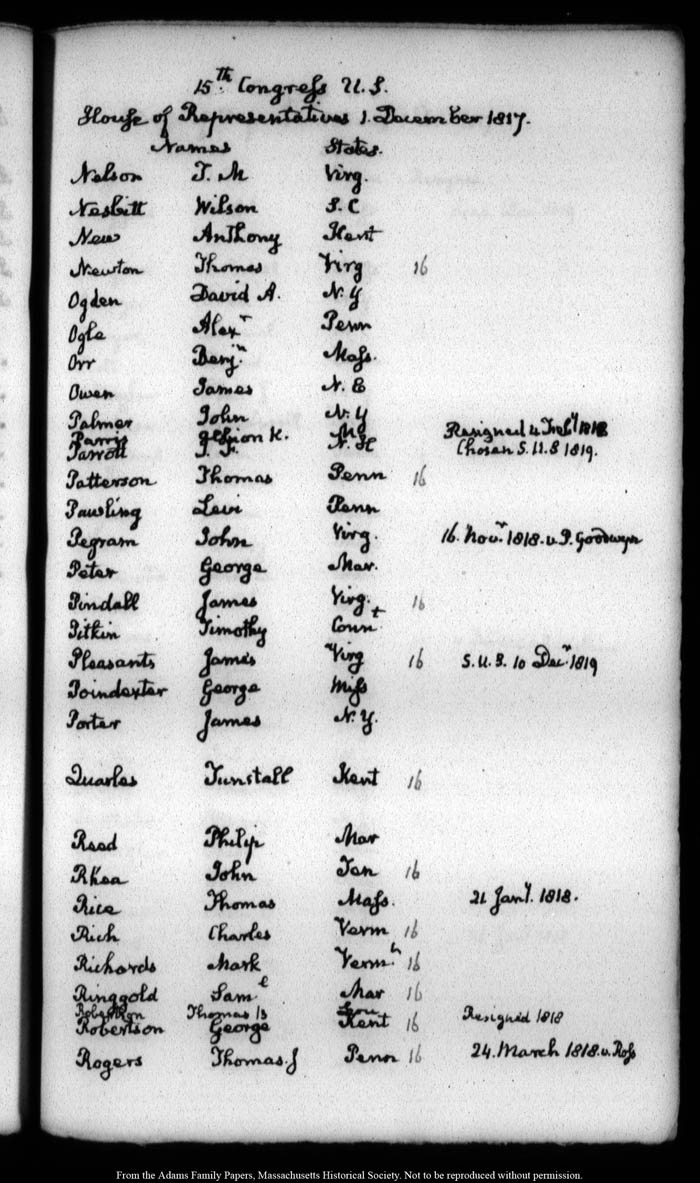 15th Congress U.S.
House of Representatives 1. December 1817.
Names States.
Nelson T. M Virg.
Nesbitt Wilson S. C
New Anthony Kent
Newton Thomas Virg 16
Ogden David A. N. Y
Ogle Alexr Penn
Orr Benjn Mass.
Owen James N. C
Palmer John N. Y
Parris Albion K. Ms Resigned 4 Feby 1818
Parrott J. F. N. H Chosen S.U.S 1819.
Patterson Thomas Penn 16
Pawling Levi Penn
Pegram John Virg. 16. Novr 1818. v. P. Goodwyn
Peter George Mar.
Pindall James Virg. 16
Pitkin Timothy Connt
Pleasants James Virg 16 S.U.S. 10 Decr 1819
Poindexter George Miss
Porter James N. Y.
Quarles Tunstall Kent 16
Reed Philip Mar
Rhea John Ten 16
Rice Thomas Mass. 21 Jany. 1818.
Rich Charles Verm 16
Richards Mark Verm. 16
Ringgold Saml Mar 16
Robertson Thomas B Lou Resigned 1818
Robertson George Kent 16
Rogers Thomas. J Penn 16 24. March 1818. v. Ross
From the Adams Family Papers, Massachusetts Historical Society. Not to be reproduced without permission.